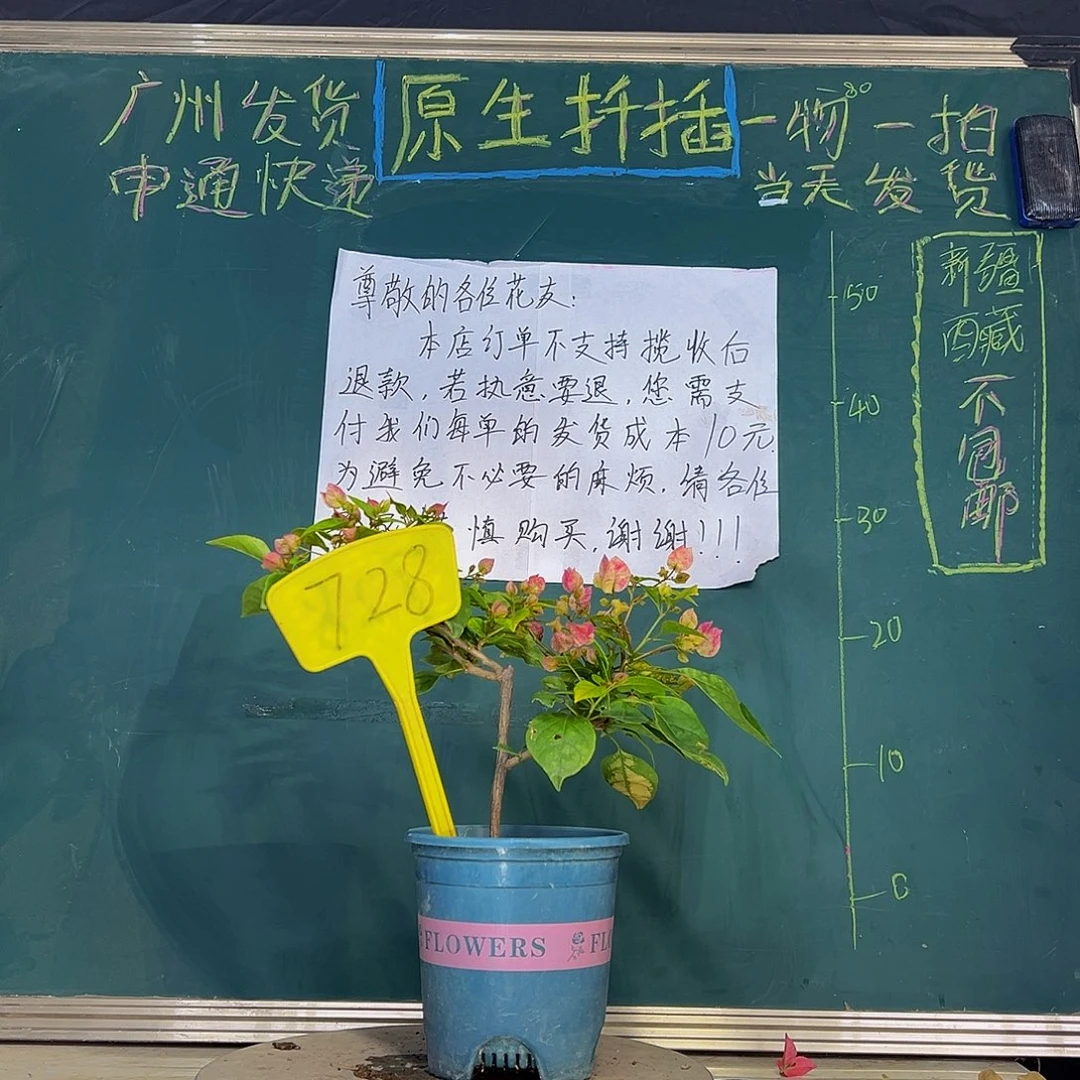 广州发货
申通快递
原生扦插
一物一拍
当天发货
新疆
西藏
不包邮
尊敬的各位花友：
本店订单不支持揽收后
退款，若执意要退，您需支
付我们每单的发货成本10元.
为避免不必要的麻烦，请各位
慎购买，谢谢！！！
50
40
30
20
10
0
728
FLOWERS
FL